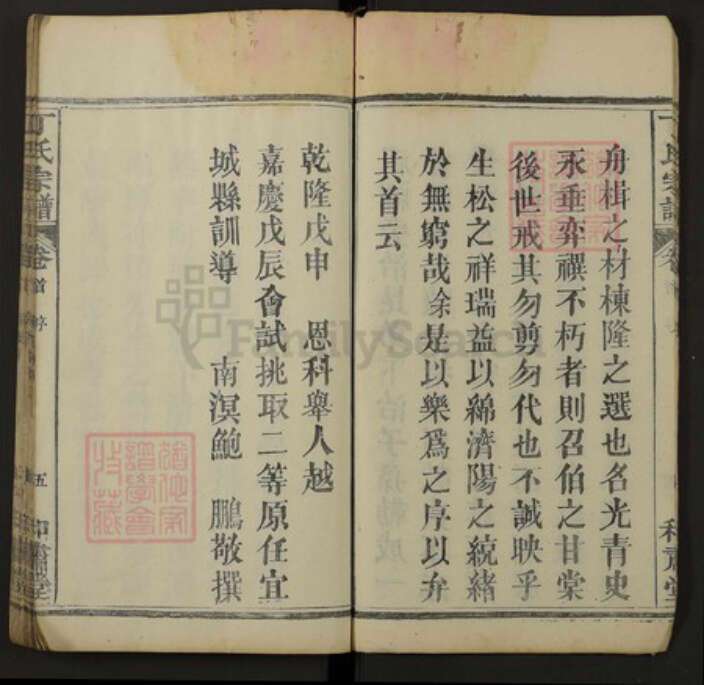 舟楫之材棟隆之選也名光青史
永垂弈禩不朽者則召伯之甘棠
後世戒其勿剪勿伐也不誠映乎
生松之祥瑞益以綿濟陽之統緒
於無窮哉余是以樂爲之序以弁
其首云
乾隆戊申 恩科舉人越
嘉慶戊辰會試挑取二等原任宜
城縣訓導 南溟鮑 鵬敬撰
丁氏宗譜 卷首 序 五
FamilySearch